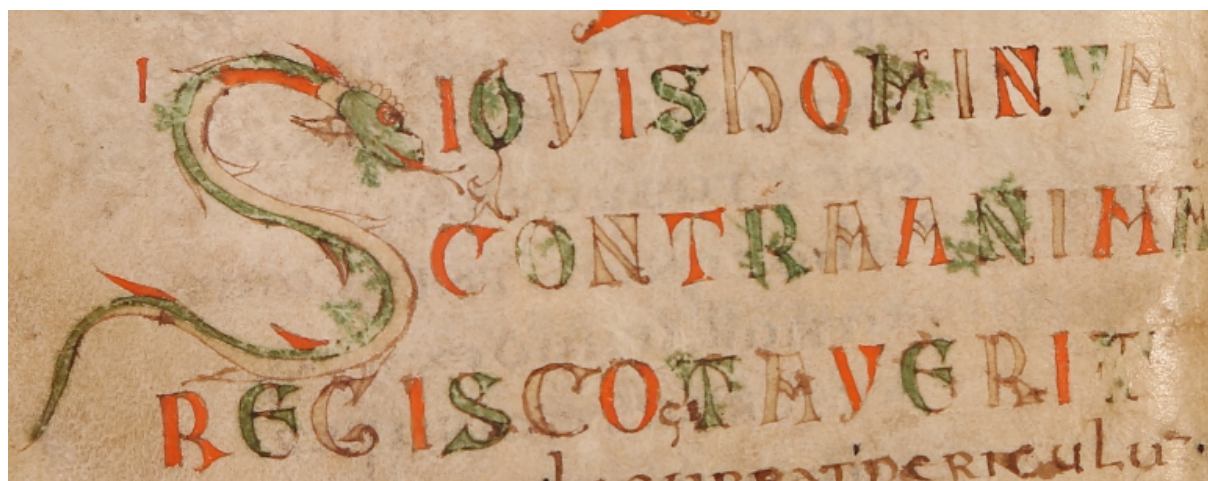 I SIQVIS hOMINVM
CONTRA ANIMA
REGIS COgiTAVERIT
PERICULU